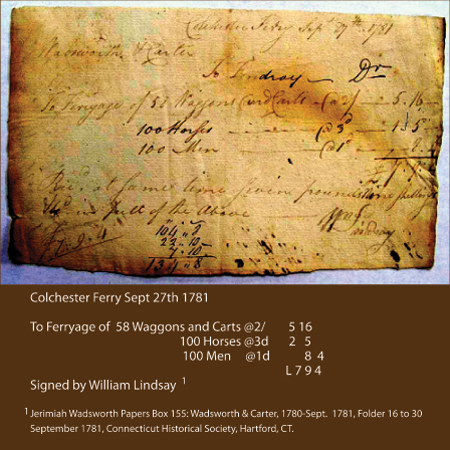 Colchester Ferry Sept 27th 1781
Wadsworth & Carter
To Lindsay — Dr
To Ferryage of 58 Waggons and Carts @ 2/ — 5.16
100 Horses — @ 3d — 1.5
100 Men — @ 1d — 8.4
£7.9.4
Rec'd at same time seven pounds nine shillings
4d in full of the Above
Wm Lindsay
£7.9.4
104 " 8
22 " 10
7 " 10
134 " 8
Colchester Ferry Sept 27th 1781
To Ferryage of 58 Waggons and Carts @2/ 5 16
100 Horses @3d 2 5
100 Men @1d 8 4
L 7 9 4
Signed by William Lindsay 1
1 Jerimiah Wadsworth Papers Box 155: Wadsworth & Carter, 1780-Sept. 1781, Folder 16 to 30
September 1781, Connecticut Historical Society, Hartford, CT.